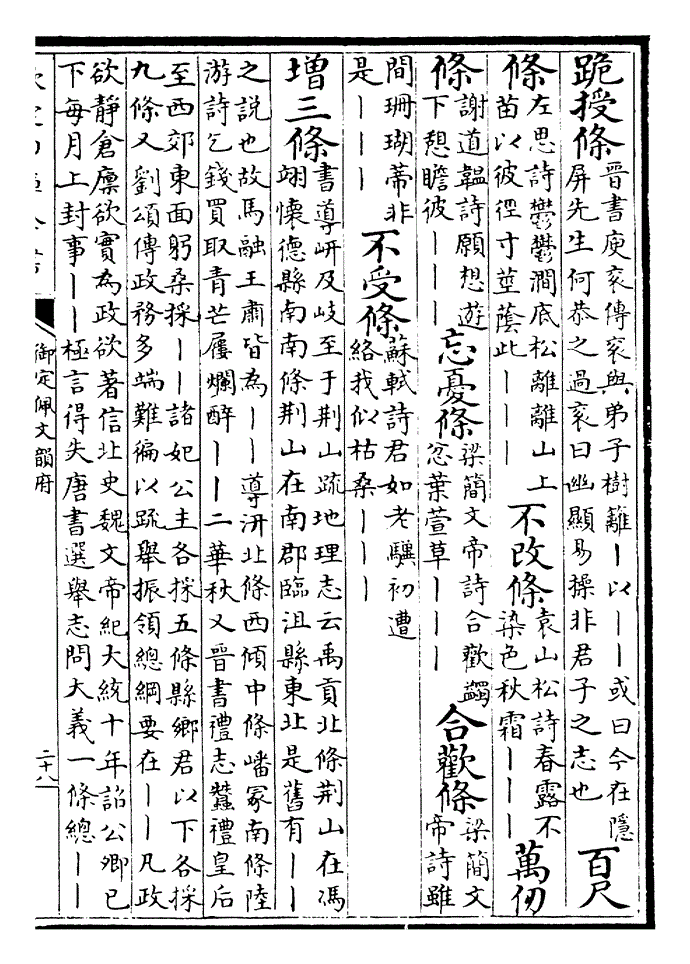 跪授條
晉書庾衮傳衮與弟子樹籬丨以丨丨或曰今在隱
屏先生何恭之過衮曰幽顯易操非君子之志也
百尺
條
左思詩鬱鬱澗底松離離山上
苗以彼徑寸莖蔭此丨丨丨
不改條
袁山松詩春露不
染色秋霜丨丨丨
萬仞
條
謝道韞詩願想遊
下憩瞻彼丨丨丨
忘憂條
梁簡文帝詩合歡蠲
忿葉萱草丨丨丨
合歡條
梁簡文
帝詩雖
間珊瑚蒂非
是丨丨丨
不受條
蘇軾詩君如老驥初遭
絡我似枯桑丨丨丨
增三條
書導岍及岐至于荆山疏地理志云禹貢北條荆山在馮
翊懷德縣南南條荆山在南郡臨沮縣東北是舊有丨丨
之説也故馬融王肅皆為丨丨導汧北條西傾中條嶓冢南條陸
游詩乞錢買取青芒屨爛醉丨丨二華秋又晉書禮志蠶禮皇后
至西郊東面躬桑採丨丨諸妃公主各採五條縣鄉君以下各採
九條又劉頌傳政務多端難徧以疏舉振領總綱要在丨丨凡政
欲靜倉廩欲實為政欲著信北史魏文帝紀大統十年詔公卿已
下每月上封事丨丨極言得失唐書選舉志問大義一條總丨丨
御定佩文韻府
二十八